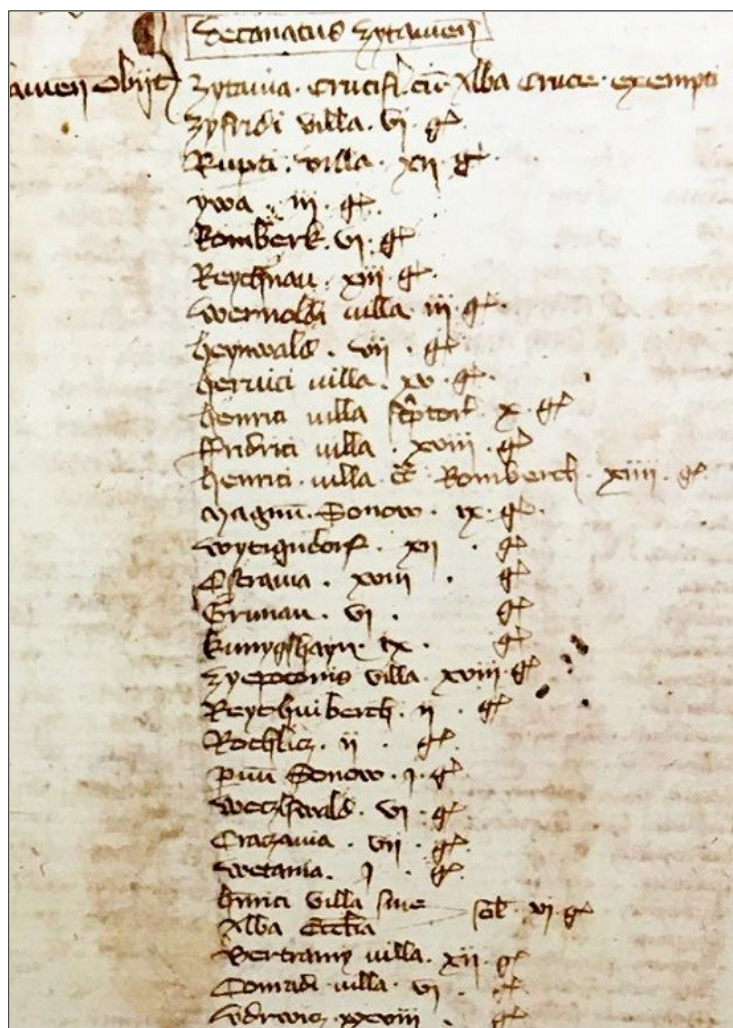 Decanatus Zytauien
auien obijt Zytauia. Crucifi. cu Alba Cruce. exempti
Zyfridi villa. vi. gr
Rupti. villa. xii. gr
ywa. iii. gr.
Romberk. vi. gr
Reychnau. xiii. gr.
wernoldi villa. iii. gr.
heynwald. vii. gr
heruici villa. xv. gr.
henrici villa x. gr
ffridrici villa. xviii. gr
henrici. villa Romberch. xiiii. gr
Magnu. Sonow. ix. gr.
wytigndorf. xii. gr
Ostrauia. xviii. gr
Grunau. vi. gr
kunygshayn. ix. gr
Zyepotonis villa. xviii. gr
Reychuiberch. ii. gr
Rochlicz. ii. gr.
puu Sonow. j. gr
weczlswald. vi. gr
Craczauia. vii. gr
wetania. j. gr
hinrici villa siue
Alba Eccleia sol. vi gr
Bertramy villa. xii. gr
Conradi. villa. vi. gr
xxviii. gr